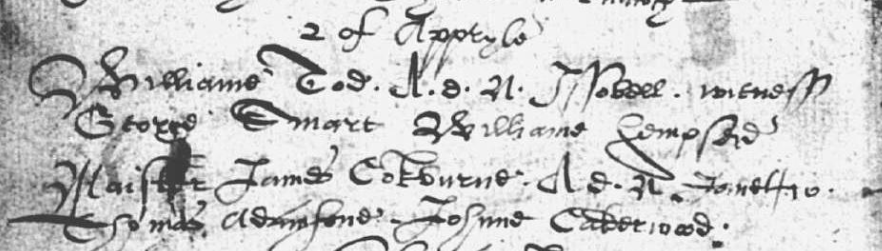 2 of Appryle
Williame Tod. A. d. N. Issobell. witness
George Smart Williame Kempseid
Maister James Cokburne. A d. N Jonet
Thomas Adamsone. Johnne Caderwood.